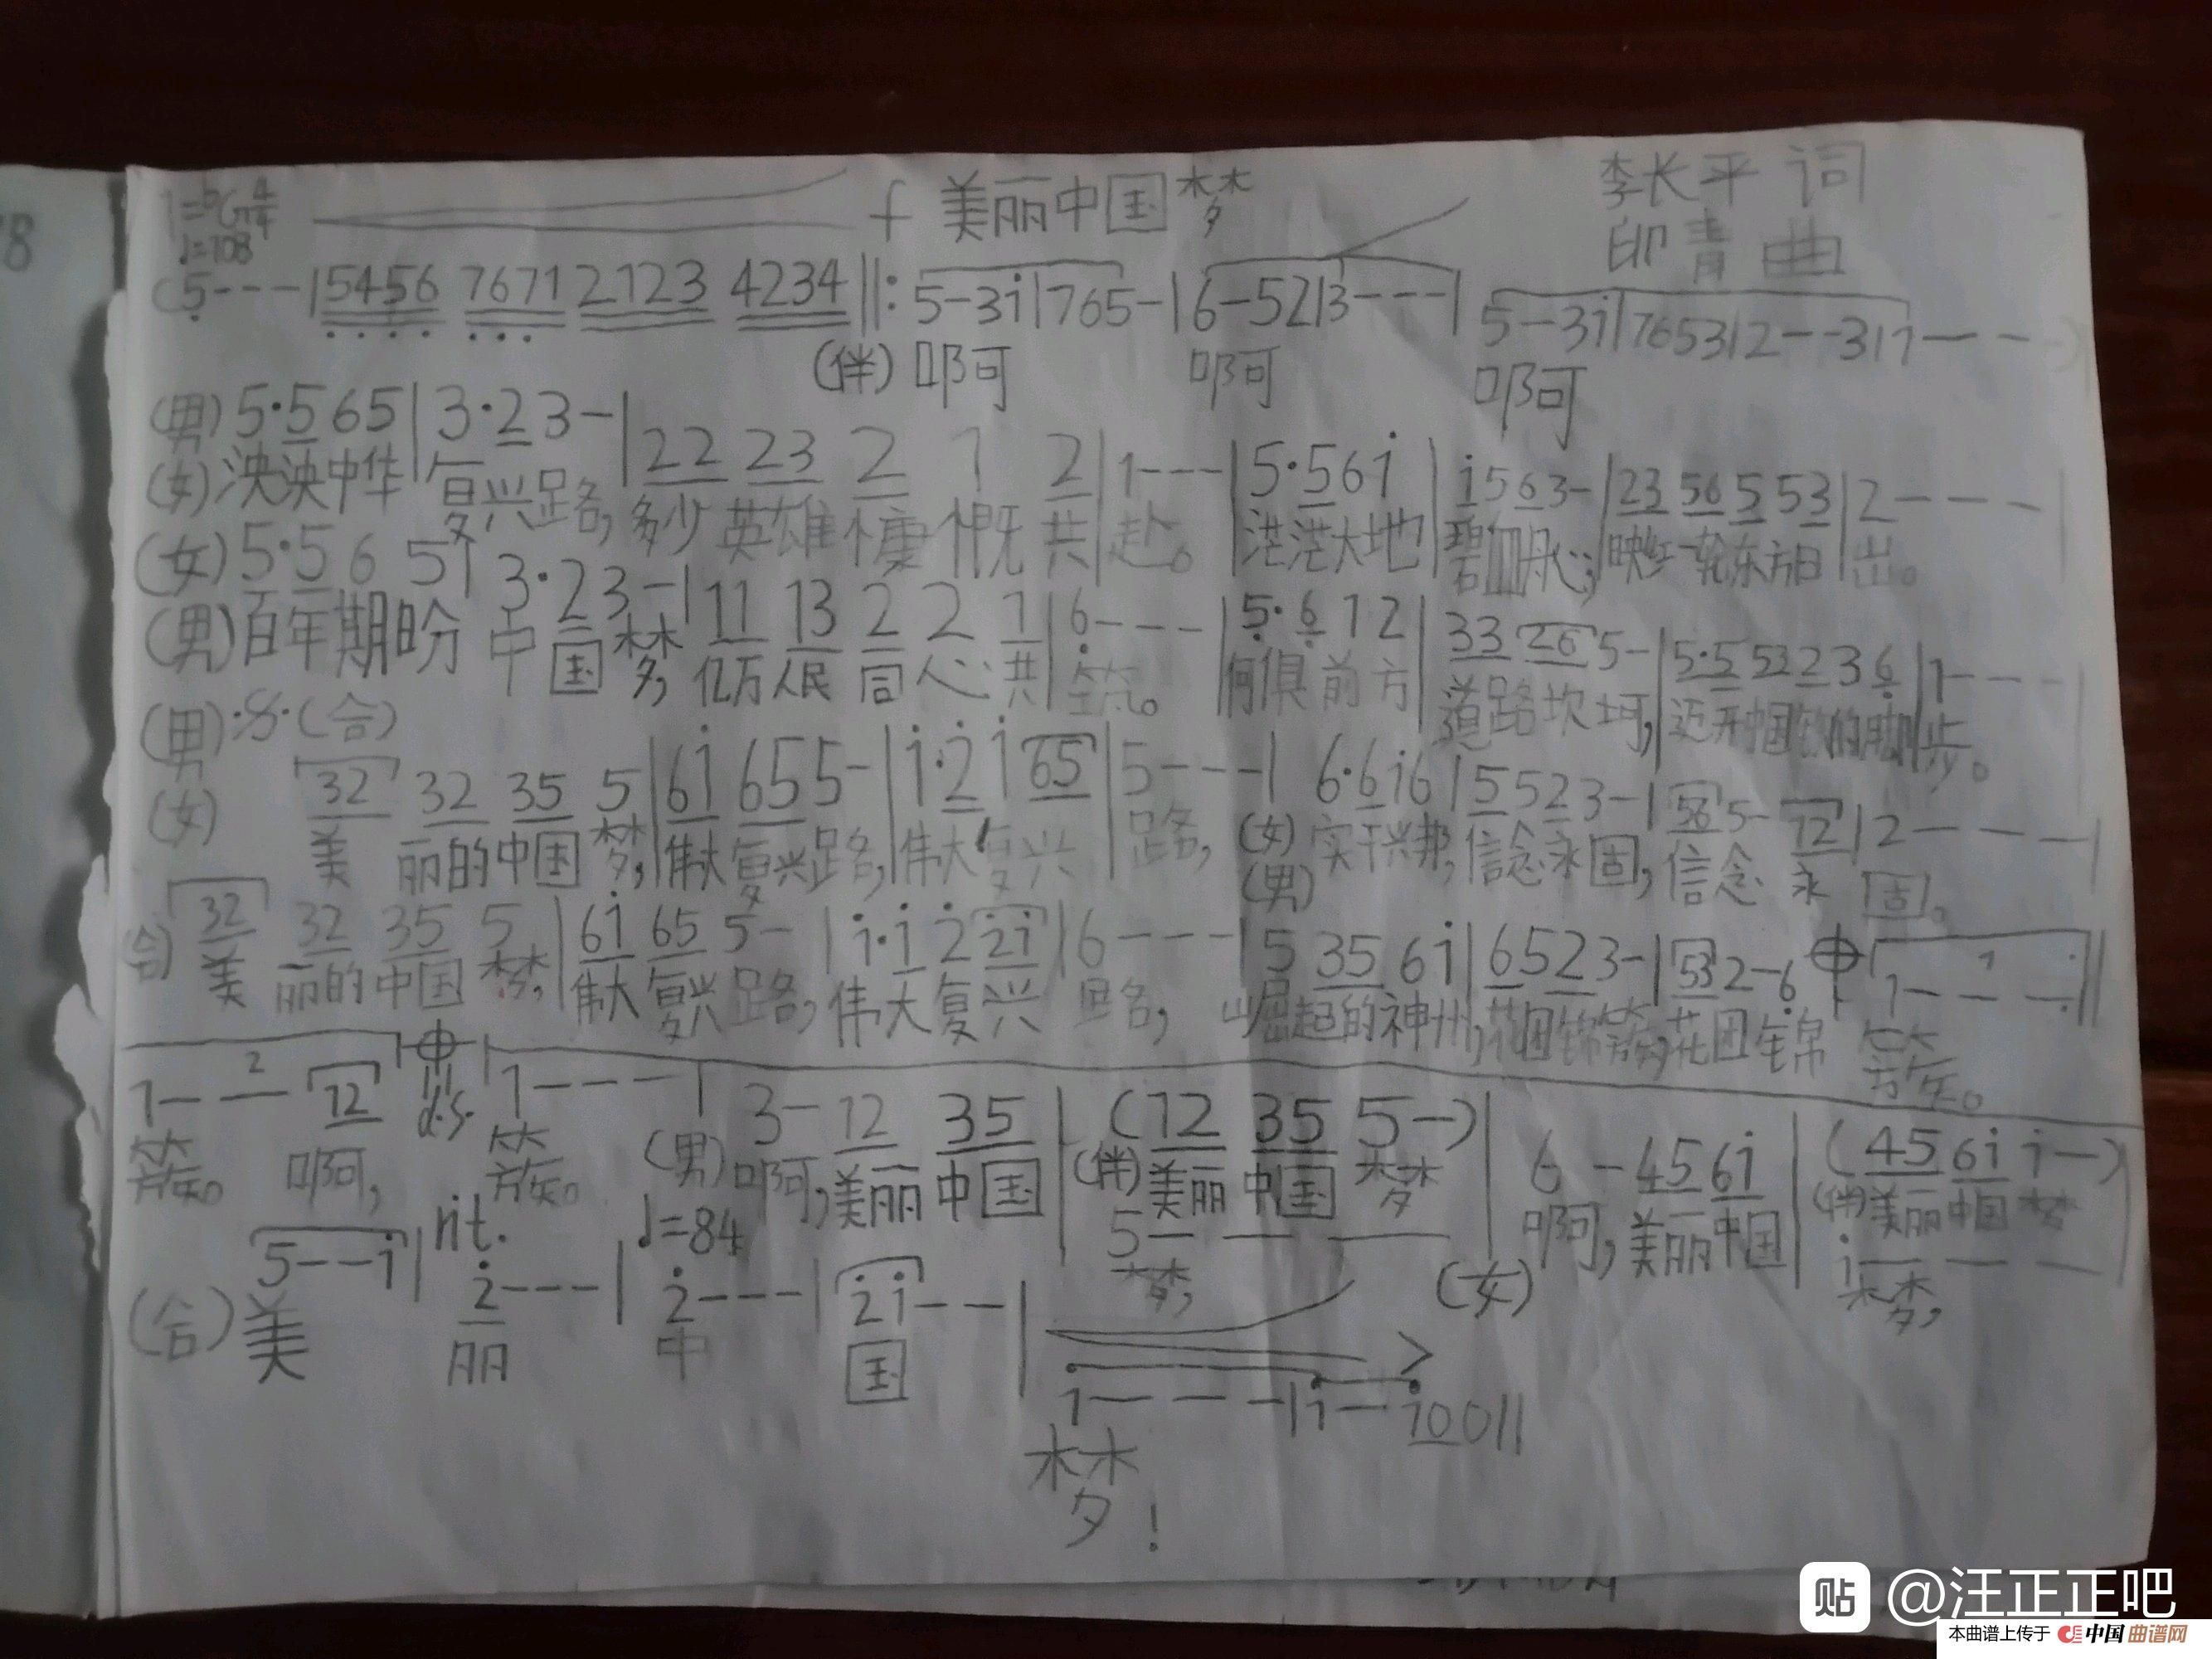 1=♭G 4/4 f 美丽中国梦 李长平 词
♩=108 印青 曲
(5---|5456 7671 2123 4234‖:5-3i|765-|6-521|3---|5-3i|76531|2--31|1---)
(伴)啊 啊 啊
(男)5·565|3·23-|22 23 2 1 2|1---|5·56i|i563-|23 56 5 53|2---|
(女)泱泱中华 复兴路,多少 英雄 慷 慨 共 赴。 茫茫大地 碧血丹心;映红一轮东方日 出。
(女)5·56 5|3·23-|11 13 2 2 1|6---|5·612|33 26 5-|5·5 53 2 3 6|1---|
(男)百年期盼 中国梦,亿万 人民 同 心 共 筑。 何俱 前方 道路坎坷,迈开中国 的脚 步。
(男)·S·(合)
32 32 35 5|6i 655-|i·2i65|5---|6·6i6|5523-|56 5- 12|2---|
(女) 美 丽的 中国 梦,伟大 复兴路,伟大 复兴 路,(女)实干兴邦,信念永固,信念 永 固。
(男)
32 32 35 5|6i 65 5-|i·i 2 2i|6---|5 35 6i|6523-|53 2-6 1 1---
(合)美 丽的 中国 梦,伟大 复兴 路,伟大复兴 路, 崛起的神州,花团锦簇,花团锦 簇。
2
1-- 12 d.s. 1---|3- 12 35|(12 35 5-)|6-45 6i|(45 6i i-)
簇。 啊, 簇。 (男)啊,美丽 中国 (伴)美丽 中国 梦 啊,美丽中国 (伴)美丽 中国 梦
rit. ♩=84 5--- (女) i---
梦, 梦,
5--i|2---|2---|2i--|
(合)美 丽 中 国
>
i---|i--i00‖
梦!
贴 @汪正正吧
本曲谱上传于 中国曲谱网